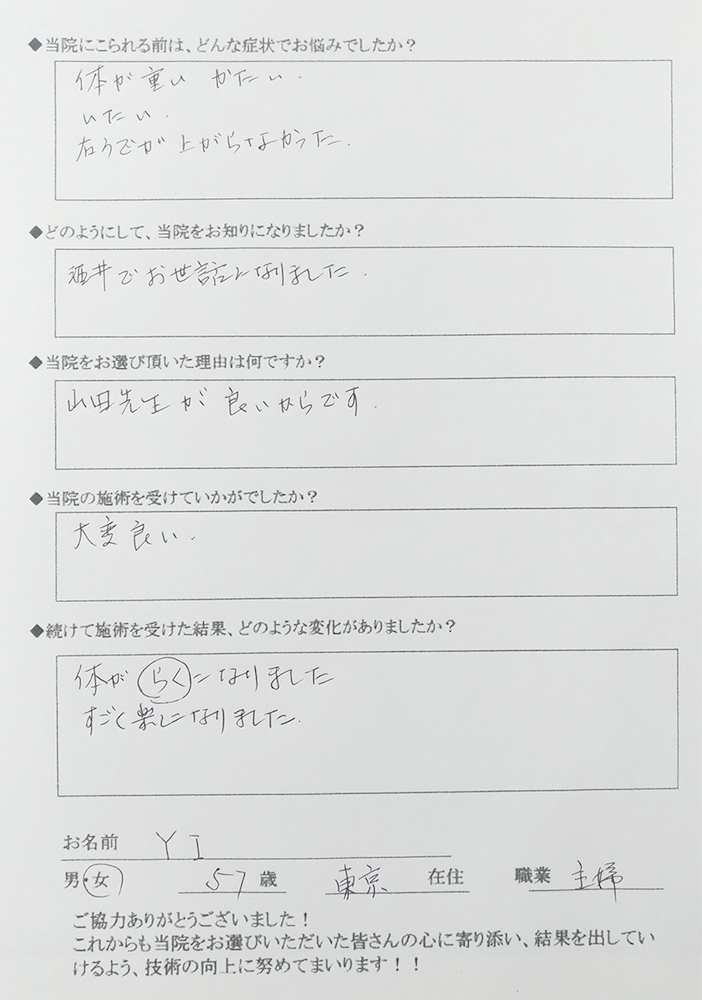 ◆当院にこられる前は、どんな症状でお悩みでしたか？
体が重い かたい.
いたい.
右うでが上がらなかった.
◆どのようにして、当院をお知りになりましたか？
酒井でお世話になりました.
◆当院をお選び頂いた理由は何ですか？
山田先生が良いからです.
◆当院の施術を受けていかがでしたか？
大変良い.
◆続けて施術を受けた結果、どのような変化がありましたか？
体がらくになりました
すごく楽しになりました.
お名前 YI
男・女 57歳 東京 在住 職業 主婦
ご協力ありがとうございました！
これからも当院をお選びいただいた皆さんの心に寄り添い、結果を出してい
けるよう、技術の向上に努めてまいります！！